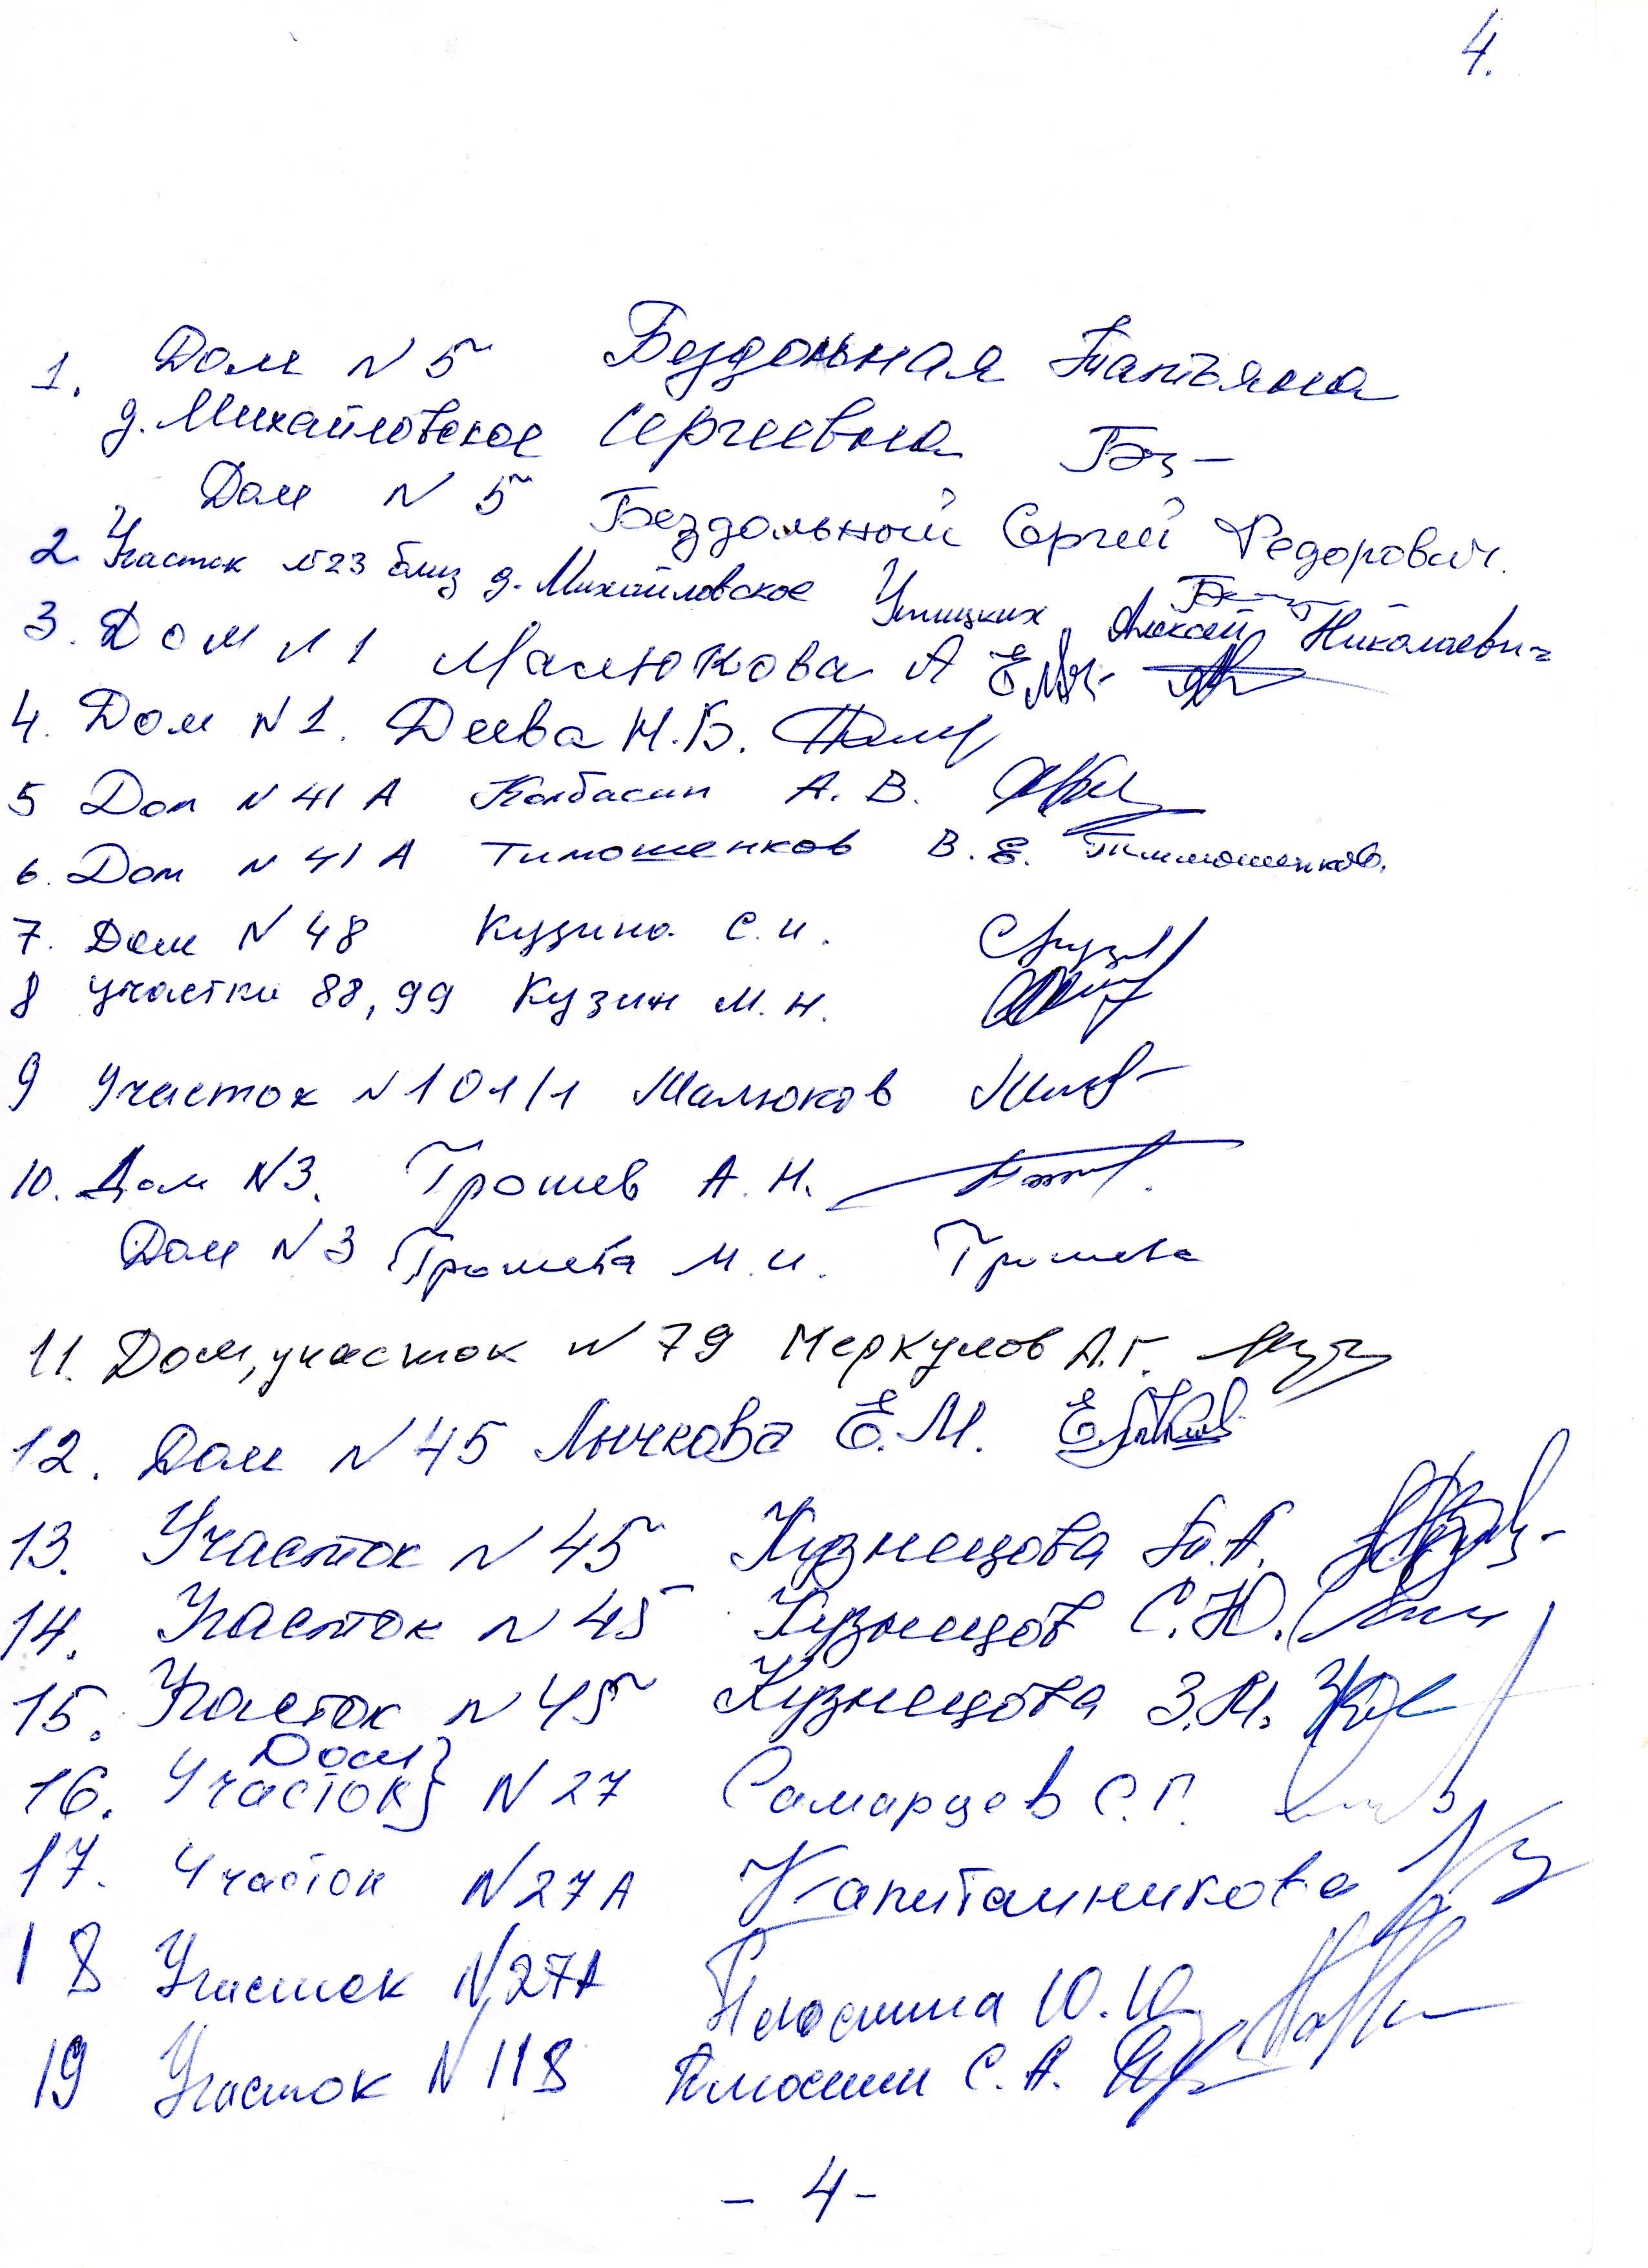 4.
1. Дом N 5 Бездольная Татьяна
д. Михайловское Сергеевна Без-
Дом N 5 Бездольный Сергей Федорович.
2 Участок N23 близ д. Михайловское Улицких Алексей Николаевич
3. Дом N 1 Малюкова А
4. Дом N 1. Деева Н.Б.
5 Дом N 41 А Колбасин А. В.
6. Дом N 41 А Тимошенков В. Е. Тимошенков.
7. Дом N 48 Кузина С. И.
8 участки 88, 99 Кузин М. Н.
9 Участок N 101/1 Малюков
10. Дом N3. Трошев А. Н.
Дом N 3 Трошева М. И. Трошева
11. Дом, участок N 79 Меркулов А.Г.
12. Дом N 45 Лычкова Е. М.
13. Участок N 45 Кузнецова Т. А.
14. Участок N 45 Кузнецов С. Ю.
15. Участок N 45 Кузнецова З. М.
Дом}
16. Участок} N 27 Самарцев С. Г.
17. Участок N 27 А Капитанникова
18 Участок N 27А Плюснина Ю. Ю.
19 Участок N 118 Плюснин С. А.
- 4 -